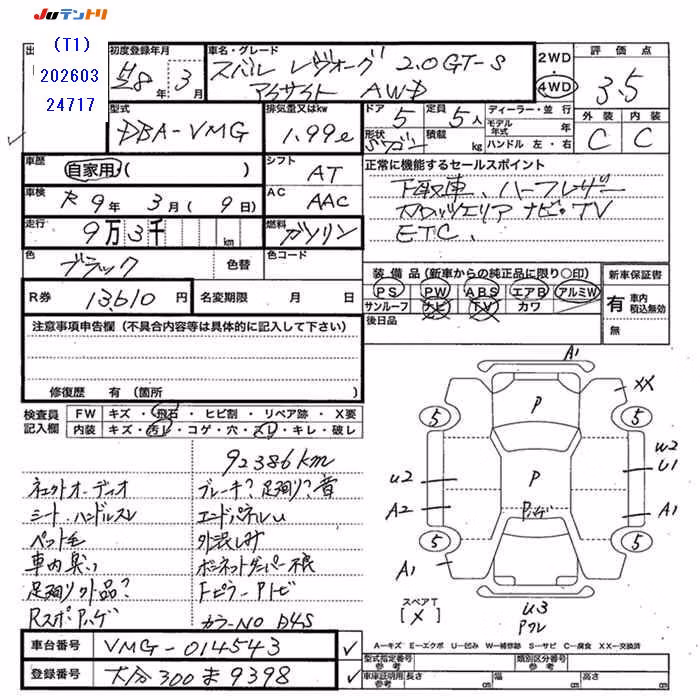 Juテントリ
(T1)
202603
24717
初度登録年月
H8年3月
車名・グレード
スバル レヴォーグ 2.0GT-S
アイサイト AWD
2WD
4WD
評価点
3.5
外装 内装
C C
型式
DBA-VMG
排気量又はkw
1.99ℓ
ドア 5
定員 5人
形状 Sワゴン
積載 kg
ディーラー・並行
モデル年式 年
ハンドル 左・右
車歴
自家用( )
シフト
AT
正常に機能するセールスポイント
下取車、ハーフレザー
ナビ・TV
ETC、
車検
R9年3月(9日)
AC
AAC
走行
9万3千 km
燃料
ガソリン
色
ブラック
色替
色コード
R券
13610円
名変期限 月 日
装備品(新車からの純正品に限り○印)
PS PW ABS エアB アルミW
サンルーフ ナビ TV カワ
後日品
新車保証書
有 車内積込無効
無
注意事項申告欄(不具合内容等は具体的に記入して下さい)
修復歴 有(箇所 )
検査員記入欄
FW キズ・飛石・ヒビ割・リペア跡・X要
内装 キズ・汚レ・コゲ・穴・スレ・キレ・破レ
92386km
ネェクトオーディオ
シート、ハンドルスレ
ペット毛
車内臭い
足廻り外品?
Rスポ・Pハゲ
ブレーキ?足廻り?音
エンドパネルU
外装しみ
ボンネットダンパー不良
Fピラー・Pトビ
カラーNO D4S
A1
XX
P
5
5
W2
U1
U2
P
A2
Pハゲ
A1
5
5
A1
U3
Pワレ
スペアT
[X]
A―キズ E―エクボ U―凹み W―補修跡 S―サビ C―腐食 XX―交換済
車台番号
VMG-014543
登録番号
大分300ま9398
型式指定番号 参考
類別区分番号 参考
車庫証明用 参考
長さ cm
幅 cm
高さ cm